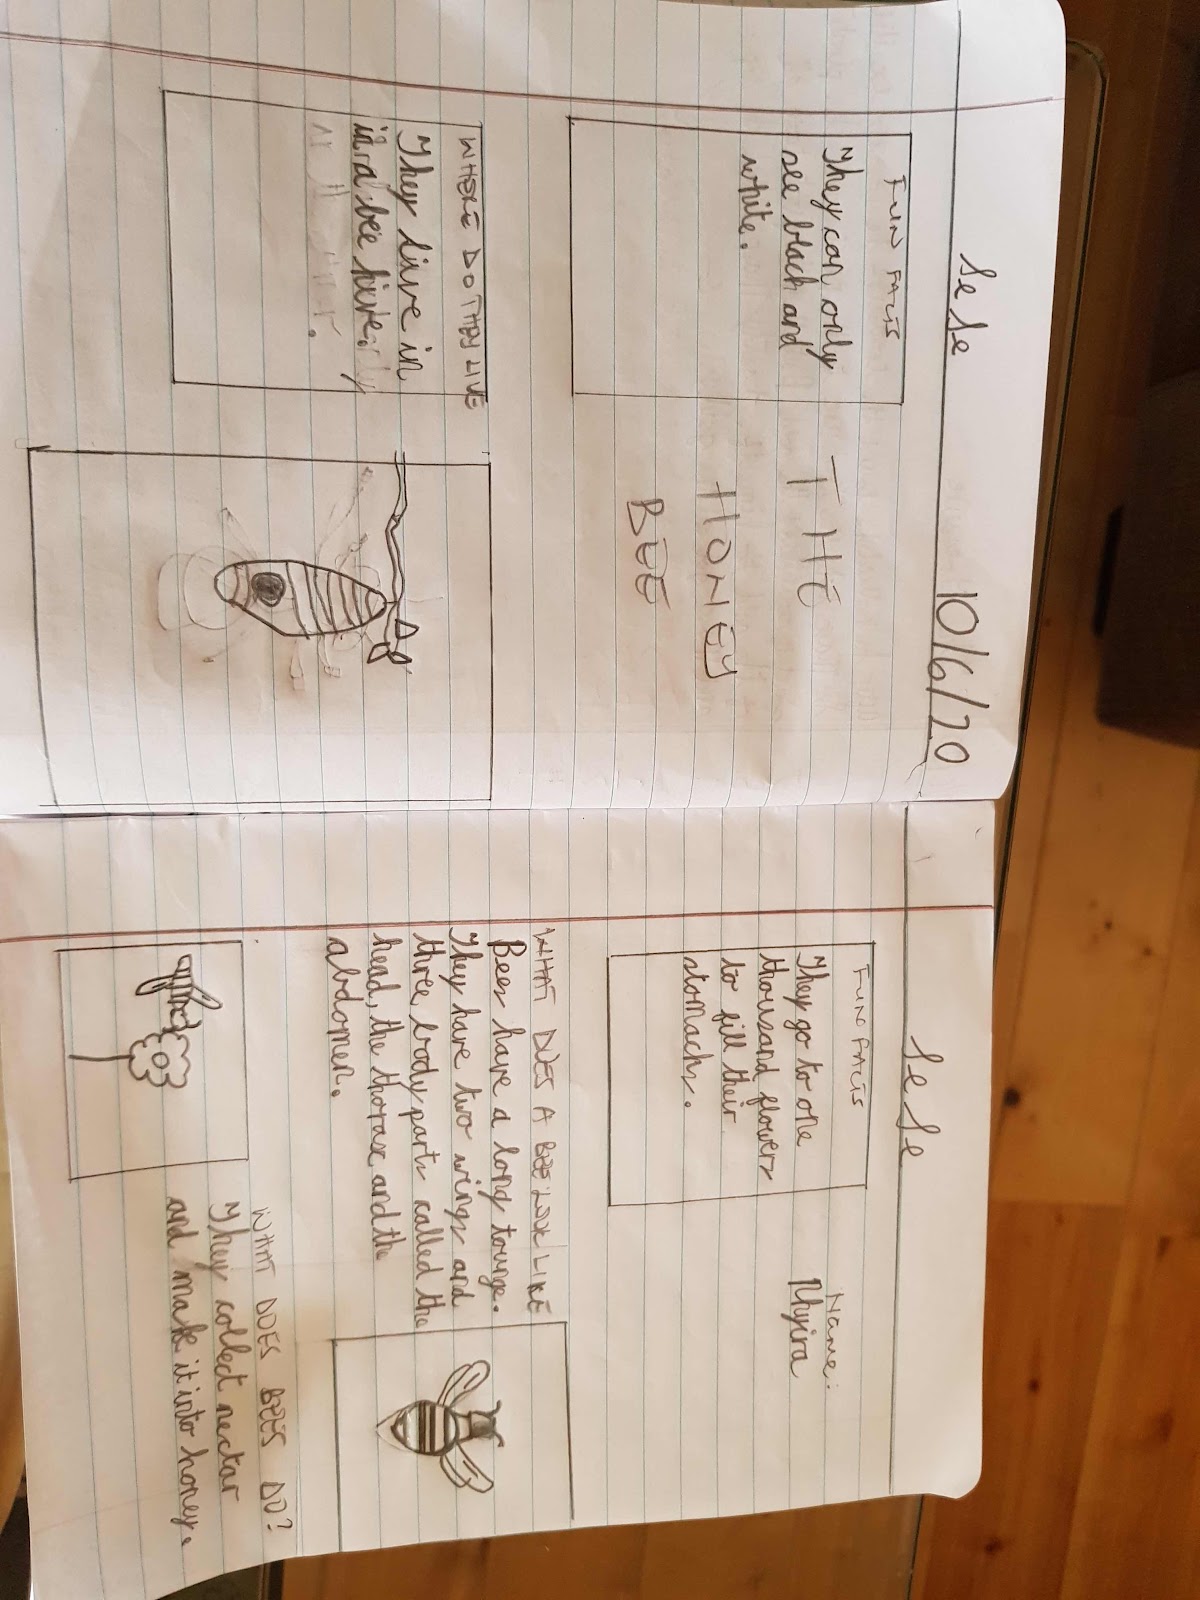 Se Se
10/6/20
FUN FACTS
They can only
see black and
white.
THE
HONEY
BEE
WHERE DO THEY LIVE
They live in
in a bee hive.
Se Se
FUN FACTS
They go to one
thousand flowers
to fill their
stomachs.
Name:
Rhyira
WHAT DOES A BEE LOOK LIKE
Bees have a long tounge.
They have two wings and
three body parts called the
head, the thorax and the
abdomen.
WHAT DOES BEES DO?
They collect nectar
and make it into honey.